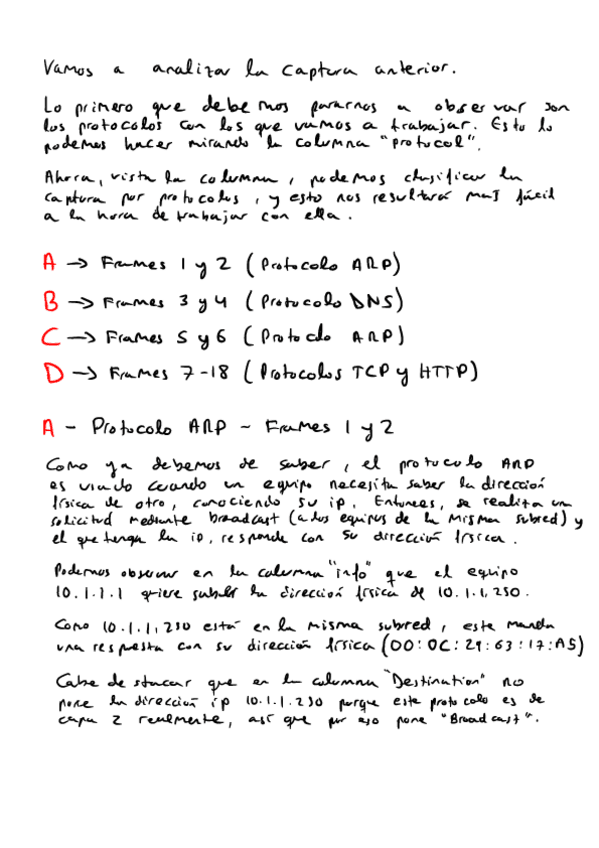 Vamos a analizar la captura anterior.
Lo primero que debemos pararnos a observar son
los protocolos con los que vamos a trabajar. Esto lo
podemos hacer mirando la columna "protocol".
Ahora, vista la columna, podemos clasificar la
captura por protocolos, y esto nos resultará mas fácil
a la hora de trabajar con ella.
A → Frames 1 y 2 (Protocolo ARP)
B → Frames 3 y 4 (Protocolo DNS)
C → Frames 5 y 6 (Protocolo ARP)
D → Frames 7-18 (Protocolos TCP y HTTP)
A - Protocolo ARP - Frames 1 y 2
Como ya debemos de saber, el protocolo ARP
es usado cuando un equipo necesita saber la dirección
física de otro, conociendo su ip. Entonces, se realiza un
solicitud mediante broadcast (a los equipos de la misma subred) y
el que tenga la ip, responde con su dirección física.
Podemos observar en la columna "info" que el equipo
10.1.1.1 quiere saber la dirección física de 10.1.1.250.
Como 10.1.1.250 está en la misma subred, este manda
una respuesta con su dirección física (00:0C:29:63:17:A5)
Cabe destacar que en la columna "Destination" no
pone la dirección ip 10.1.1.250 porque este protocolo es de
capa 2 realmente, así que por eso pone "Broadcast".